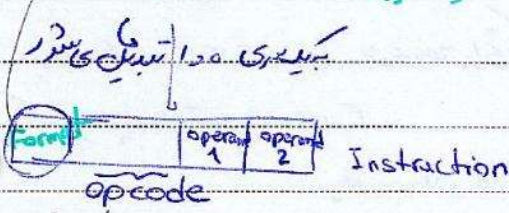 به یکسری ۰ و ۱ تبدیل می شود
Format operand 1 operand 2 Instruction
opcode